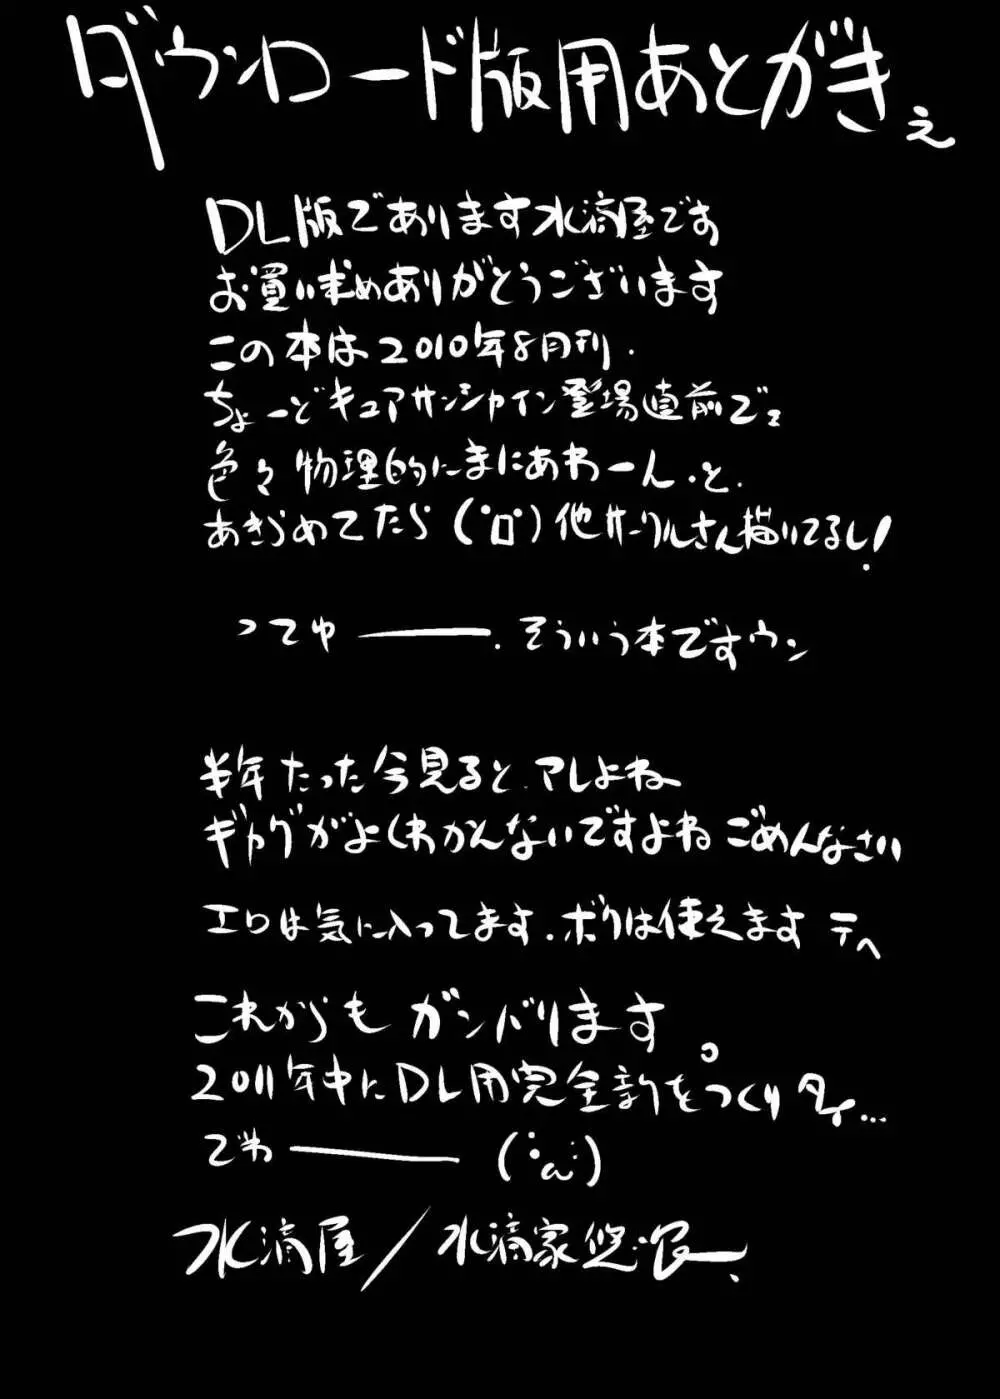 ダウンロード版用あとがきぇ
DL版であります水滴屋です
お買い求めありがとうございます
この本は2010年8月刊.
ちょーどキュアサンシャイン登場直前でェ
色々物理的にまにあわーん.と.
あきらめてたら(゜ロ゜)他サークルさん描いてるし!
つてゆ――.そういう本ですウン
半年たった今見ると.アレよね
ギャグがよくわかんないですよねごめんなさい
エロは気に入ってます.ボクは使えます テヘ
これからもガンバります。
2011年中にDL用完全新をつくりタイ...
でわ――
水滴屋/水滴家